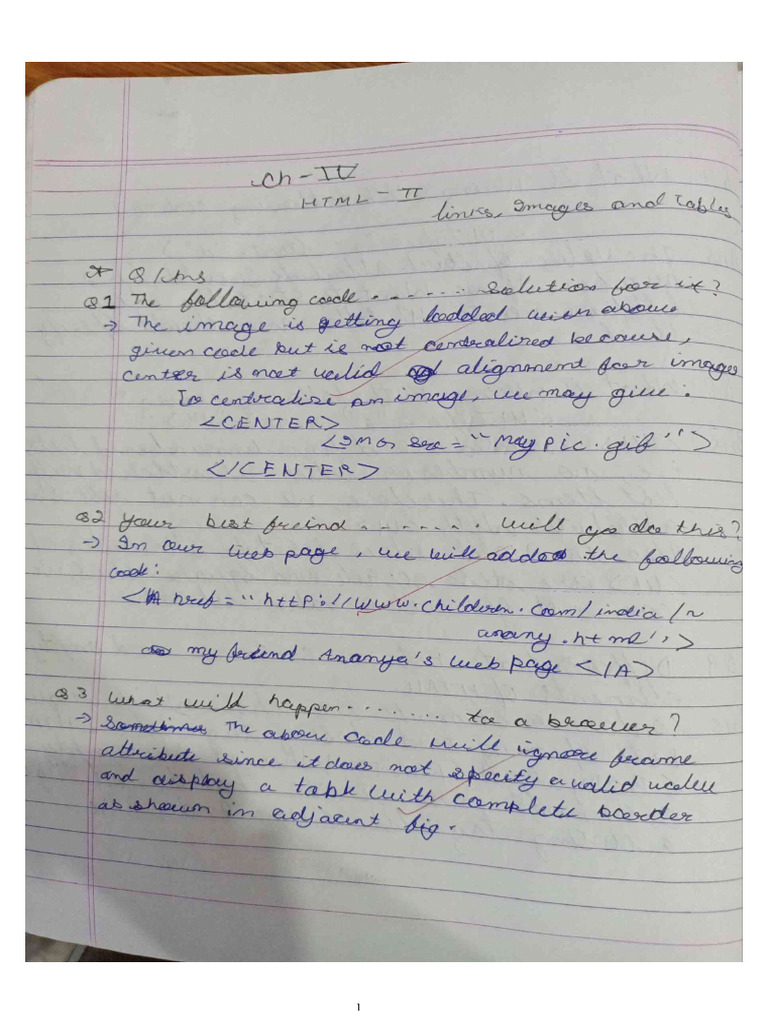 Ch - IV
HTML - II
links, Images and Tables
* Q/Ans
Q1 The following code ....... solution for it?
→ The image is getting loadded with above
given code but is not centralized because,
center is not valid alignment for images
To centralise an image, we may give :
<CENTER>
<IMG src = "may pic.gif">
</CENTER>
Q2 Your best freind ....... will you do this?
→ In our web page, we will added the following
code:
<A href = "http://www.children.com/india/~
anany.html">
my friend Ananya's web page </A>
Q3 What will happen ........ to a browser?
→ The above code will ignore frame
attribute since it does not specify a valid value
and display a table with complete border
as shown in adjacent fig.
1